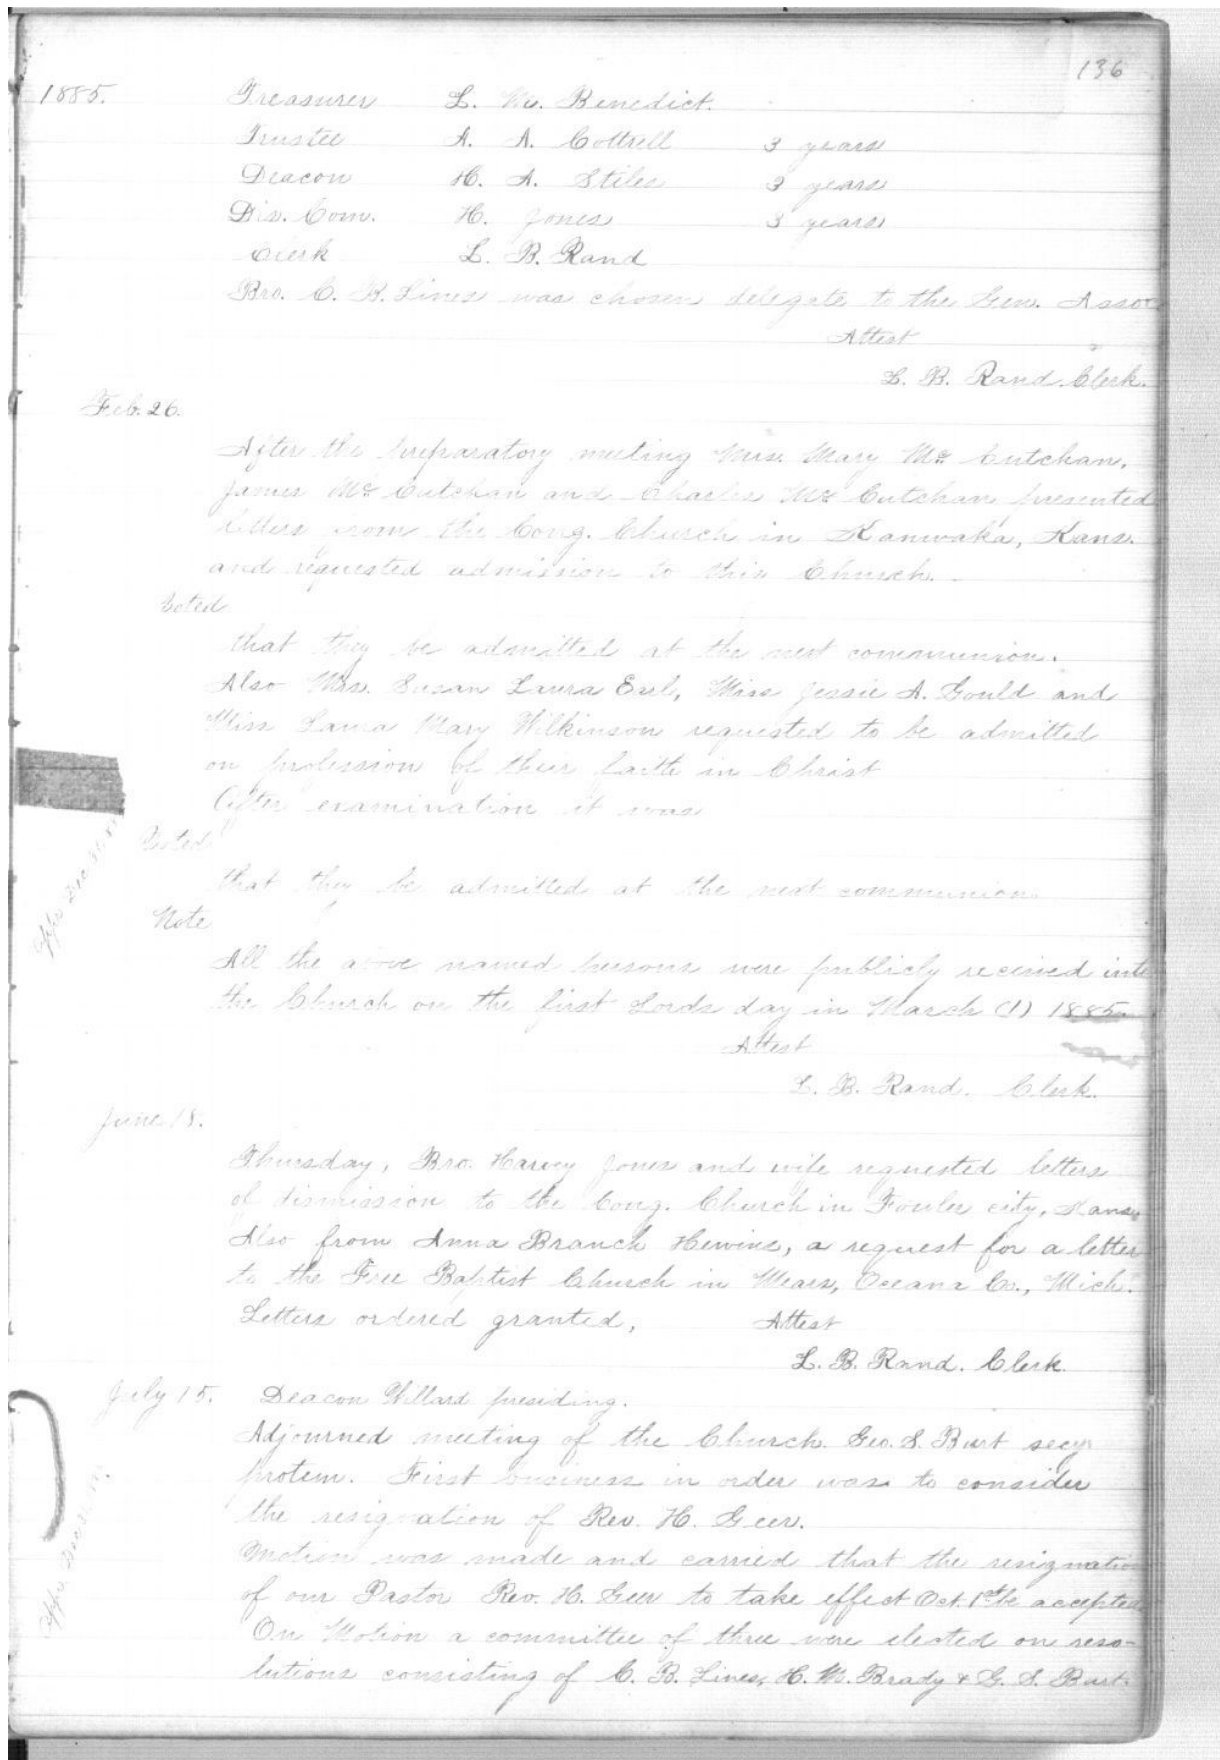 136
1885. Treasurer L. W. Benedict.
Trustee A. A. Cottrell 3 years
Deacon H. A. Stiles 3 years
Dis. Com. H. Jones 3 years
Clerk L. B. Rand
Bro. C. B. Lines was chosen delegate to the Gen. Asso
Attest
L. B. Rand. Clerk.
Feb. 26.
After the preparatory meeting Mrs. Mary Mc Cutchan,
James Mc Cutchan and Charles Mc Cutchan presented
letters from the Cong. Church in Kanwaka, Kans.
and requested admission to this Church.
Voted
that they be admitted at the next communion.
Also Mrs. Susan Laura Earl, Miss Jessie A. Gould and
Miss Laura Mary Wilkinson requested to be admitted
on profession of their faith in Christ
After examination it was
Voted
that they be admitted at the next communion.
Note
All the above named persons were publicly received into
the Church on the first Lords day in March (1) 1885.
Attest
L. B. Rand. Clerk.
June 18.
Thursday, Bro. Harvey Jones and wife requested letters
of dismission to the Cong. Church in Fowler city, Kans.
Also from Anna Branch Hewins, a request for a letter
to the Free Baptist Church in Mears, Oceana Co., Mich.
Letters ordered granted, Attest
L. B. Rand. Clerk.
July 15. Deacon Willard presiding.
Adjourned meeting of the Church. Geo. S. Burt secy
protem. First business in order was to consider
the resignation of Rev. H. Geer.
Motion was made and carried that the resignation
of our Pastor Rev. H. Geer to take effect Oct. 1st be accepted.
On Motion a committee of three were elected on reso-
lutions consisting of C. B. Lines, H. M. Brady & G. S. Burt.